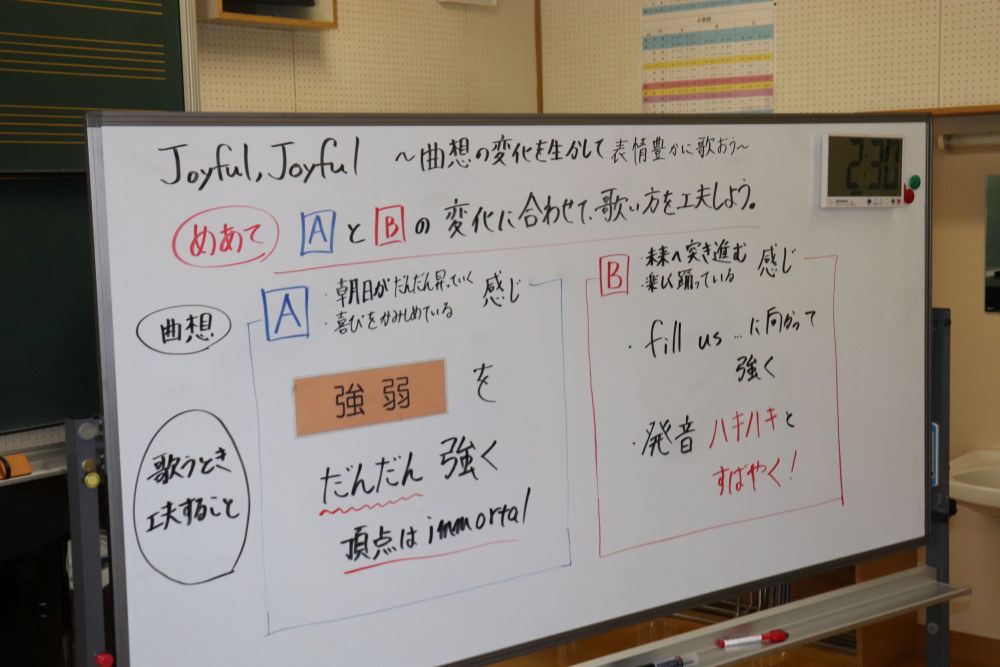 小学校
Joyful, Joyful ～曲想の変化を生かして 表情豊かに歌おう～
2:30
めあて AとBの変化に合わせて、歌い方を工夫しよう。
曲想
A
・朝日がだんだん昇っていく
・喜びをかみしめている
感じ
強弱 を
だんだん強く
頂点はimmortal
B
・未来へ突き進む
・楽しく踊っている
感じ
・fill us…に向かって
強く
・発音 ハキハキと
すばやく!
歌うとき
工夫すること